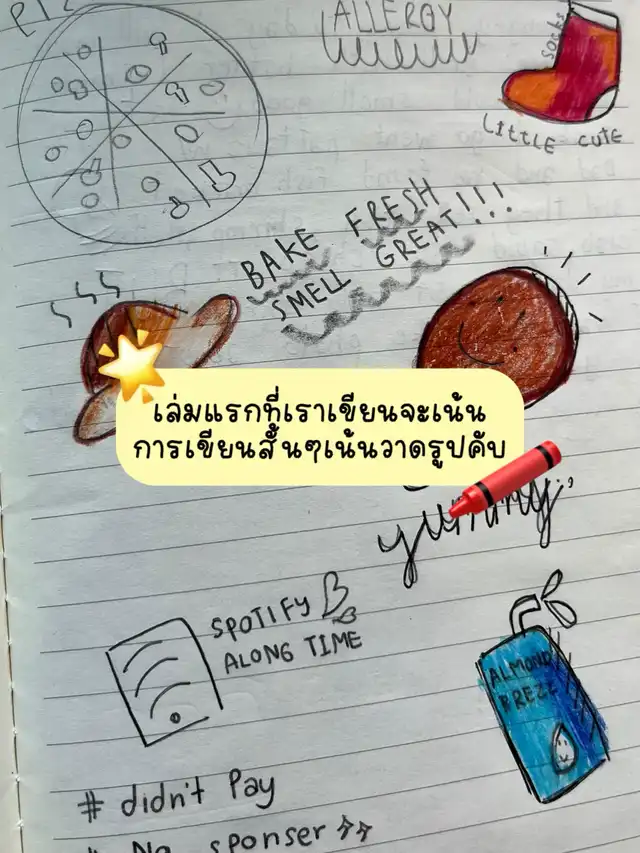 PIZ
ALLERGY
SOCKS
LITTLE CUTE
BAKE FRESH
SMELL GREAT!!!
เล่มแรกที่เราเขียนจะเน้น
การเขียนสั้นๆเน้นวาดรูปคับ
yummy,
SPOTIFY
ALONG TIME
ALMOND
BREZE
# didn't Pay
# No sponser